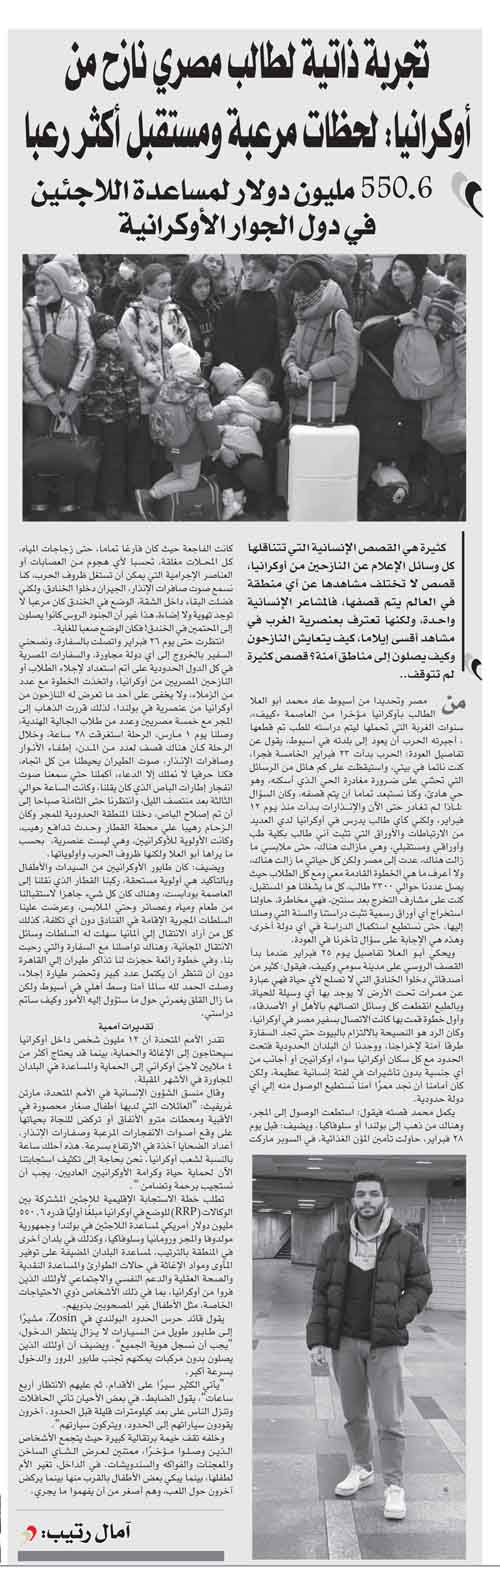 تجربة ذاتية لطالب مصري نازح من
أوكرانيا: لحظات مرعبة ومستقبل أكثر رعبا
550.6 مليون دولار لمساعدة اللاجئين
في دول الجوار الأوكرانية
كثيرة هي القصص الإنسانية التي تتناقلها
كل وسائل الإعلام عن النازحين من أوكرانيا،
قصص لا تختلف مشاهدها عن أي منطقة
في العالم يتم قصفها، فالمشاعر الإنسانية
واحدة، ولكنها تعترف بعنصرية الغرب في
مشاهد أقسى إيلاما، كيف يتعايش النازحون
وكيف يصلون إلى مناطق آمنة؟ قصص كثيرة
لم تتوقف..
من مصر وتحديدا من أسيوط عاد محمد أبو العلا
الطالب بأوكرانيا مؤخرا من العاصمة «كييف»،
سنوات الغربة التي تحملها ليتم دراسته للطب تم قطعها
، أجبرته الحرب أن يعود إلى بلدته في أسيوط، يقول عن
تفاصيل العودة: الحرب بدأت ٢٣ فبراير الخامسة فجرا،
كنت نائما في بيتي، واستيقظت على كم هائل من الرسائل
التي تحثني على ضرورة مغادرة الحي الذي أسكنه، وهو
حي هادئ، وكنا نستبعد تماما أن يتم قصفه، وكان السؤال
لماذا لم تغادر حتى الآن والإنذارات بدأت منذ يوم ١٢
فبراير، ولكني كأي طالب يدرس في أوكرانيا لدي العديد
من الارتباطات والأوراق التي تثبت أني طالب بكلية طب
وأوراقي ومستقبلي، وهي مازالت هناك، حتى ملابسي ما
زالت هناك، عدت إلى مصر ولكن كل حياتي ما زالت هناك،
ولا أعرف ما هي الخطوة القادمة معي ومع كل الطلاب حيث
يصل عددنا حوالي ٣٣٠٠ طالب، كل ما يشغلنا هو المستقبل،
كنت على مشارف التخرج بعد سنتين، فهي مخاطرة، حاولنا
استخراج أي أوراق رسمية تثبت دراستنا والسنة التي وصلنا
إليها، حتى نستطيع استكمال الدراسة في أي دولة أخرى،
وهذه هي الإجابة على سؤال تأخرنا في العودة.
ويحكي أبو العلا تفاصيل يوم ٢٥ فبراير عندما بدأ
القصف الروسي على مدينة سومي وكييف، فيقول: كثير من
أصدقائي دخلوا الخنادق التي لا تصلح لأي حياة فهي عبارة
عن ممرات تحت الأرض لا يوجد بها أي وسيلة للحياة،
وبالطبع انقطعت كل وسائل اتصالهم بالأهل أو الأصدقاء،
وأول خطوة قمت بها كانت الاتصال بسفير مصر في أوكرانيا،
وكان الرد هو النصيحة بالالتزام بالبيوت حتى تجد السفارة
طرقا آمنة لإخراجنا، ووجدنا أن البلدان الحدودية فتحت
الحدود مع كل سكان أوكرانيا سواء أوكرانيين أو أجانب من
أي جنسية بدون تأشيرات في لفتة إنسانية عظيمة، ولكن
كان أمامنا أن نجد ممرًا آمنا نستطيع الوصول منه إلي أي
دولة حدودية.
يكمل محمد قصته فيقول: استطعت الوصول إلى المجر،
وهناك من ذهب إلى بولندا أو سلوفاكيا، ويضيف: قبل يوم
٢٨ فبراير، حاولت تأمين المؤن الغذائية، في السوبر ماركت
كانت الفاجعة حيث كان فارغا تماما، حتى زجاجات المياه،
كل المحلات مغلقة، تحسبا لأي هجوم من العصابات أو
العناصر الإجرامية التي يمكن أن تستغل ظروف الحرب، كنا
نسمع صوت صافرات الإنذار، الجيران دخلوا الخنادق، ولكني
فضلت البقاء داخل الشقة، الوضع في الخندق كان مرعبا لا
توجد تهوية ولا إضاءة، هذا غير أن الجنود الروس كانوا يصلون
إلى المحتمين في الخندق! فكان الوضع صعبا للغاية.
انتظرت حتى يوم ٢٦ فبراير واتصلت بالسفارة، ونصحني
السفير بالخروج إلى أي دولة مجاورة، والسفارات المصرية
في كل الدول الحدودية على أتم استعداد لإجلاء الطلاب أو
النازحين المصريين من أوكرانيا، واتخذت الخطوة مع عدد
من الزملاء، ولا يخفى على أحد ما تعرض له النازحون من
أوكرانيا من عنصرية في بولندا، لذلك قررت الذهاب إلى
المجر مع خمسة مصريين وعدد من طلاب الجالية الهندية،
وصلنا يوم ١ مارس، الرحلة استغرقت ٢٨ ساعة، وخلال
الرحلة كان هناك قصف لعدد من المدن، إطفاء الأنوار
وصافرات الإنذار، صوت الطيران يحيطنا من كل اتجاه،
فكنا حرفيا لا نملك إلا الدعاء، أكملنا حتي سمعنا صوت
انفجار إطارات الباص الذي كان يقلنا، وكانت الساعة حوالي
الثالثة بعد منتصف الليل، وانتظرنا حتى الثامنة صباحا إلى
أن تم إصلاح الباص، دخلنا المنطقة الحدودية للمجر وكان
الزحام رهيبا علي محطة القطار وحدث تدافع رهيب،
وكانت الأولوية للأوكرانيين، وهي ليست عنصرية، بحسب
ما يراها أبو العلا ولكنها ظروف الحرب وأولوياتها.
ويضيف: كان طابور الأوكرانيين من السيدات والأطفال
وبالتأكيد هي أولوية مستحقة، ركبنا القطار الذي نقلنا إلى
العاصمة بودابست، وهناك كان كل شيء جاهزا لاستقبالنا
من طعام ومياه وعصائر وحتي الملابس، وعرضت علينا
السلطات المجرية الإقامة في الفنادق دون أي تكلفة، كذلك
كل من أراد الانتقال إلي ألمانيا سهلت له السلطات وسائل
الانتقال المجانية، وهناك تواصلنا مع السفارة والتي رحبت
بنا، وفي خطوة رائعة حجزت لنا تذاكر طيران إلي القاهرة
دون أن ننتظر أن يكتمل عدد كبير وتحضر طيارة إجلاء،
وصلت الحمد لله سالما آمنا وسط أهلي في أسيوط ولكن
ما زال القلق يغمرني حول ما ستؤول إليه الأمور وكيف سأتم
دراستي.
تقديرات أممية
تقدر الأمم المتحدة أن ١٢ مليون شخص داخل أوكرانيا
سيحتاجون إلى الإغاثة والحماية، بينما قد يحتاج أكثر من
٤ ملايين لاجئ أوكراني إلى الحماية والمساعدة في البلدان
المجاورة في الأشهر المقبلة.
وقال منسق الشؤون الإنسانية في الأمم المتحدة، مارتن
غريفيث: "العائلات التي لديها أطفال صغار محصورة في
الأقبية ومحطات مترو الأنفاق أو تركض للنجاة بحياتها
على وقع أصوات الانفجارات المرعبة وصفارات الإنذار.
أعداد الضحايا آخذة في الارتفاع بسرعة. هذه أحلك ساعة
بالنسبة لشعب أوكرانيا. نحن بحاجة إلى تكثيف استجابتنا
الآن لحماية حياة وكرامة الأوكرانيين العاديين. يجب أن
نستجيب برحمة وتضامن".
تطلب خطة الاستجابة الإقليمية للاجئين المشتركة بين
الوكالات (RRP) للوضع في أوكرانيا مبلغًا أوليًا قدره ٥٥٠.٦
مليون دولار أمريكي لمساعدة اللاجئين في بولندا وجمهورية
مولدوفا والمجر ورومانيا وسلوفاكيا، وكذلك في بلدان أخرى
في المنطقة بالترتيب، لمساعدة البلدان المضيفة على توفير
المأوى ومواد الإغاثة في حالات الطوارئ والمساعدة النقدية
والصحة العقلية والدعم النفسي والاجتماعي لأولئك الذين
فروا من أوكرانيا، بما في ذلك الأشخاص ذوي الاحتياجات
الخاصة، مثل الأطفال غير المصحوبين بذويهم.
يقول قائد حرس الحدود البولندي في Zosin، مشيرًا
إلى طابور طويل من السيارات لا يزال ينتظر الدخول،
"يجب أن نسجل هوية الجميع". ويضيف أن أولئك الذين
يصلون بدون مركبات يمكنهم تجنب طابور المرور والدخول
بسرعة أكبر.
"يأتي الكثير سيرًا على الأقدام، ثم عليهم الانتظار أربع
ساعات"، يقول الضابط. في بعض الأحيان تأتي الحافلات
وتنزل الناس على بعد كيلومترات قليلة قبل الحدود. آخرون
يقودون سياراتهم إلى الحدود، ويتركون سياراتهم".
وخلفه تقف خيمة برتقالية كبيرة حيث يتجمع الأشخاص
الذين وصلوا مؤخرًا، ممتنين لعرض الشاي الساخن
والمعجنات والفواكه والسندويشات. في الداخل، تغير الأم
لطفلها، بينما يبكي بعض الأطفال بالقرب منها بينما يركض
آخرون حول اللعب، وهم أصغر من أن يفهموا ما يجري.
آمال رتيب: